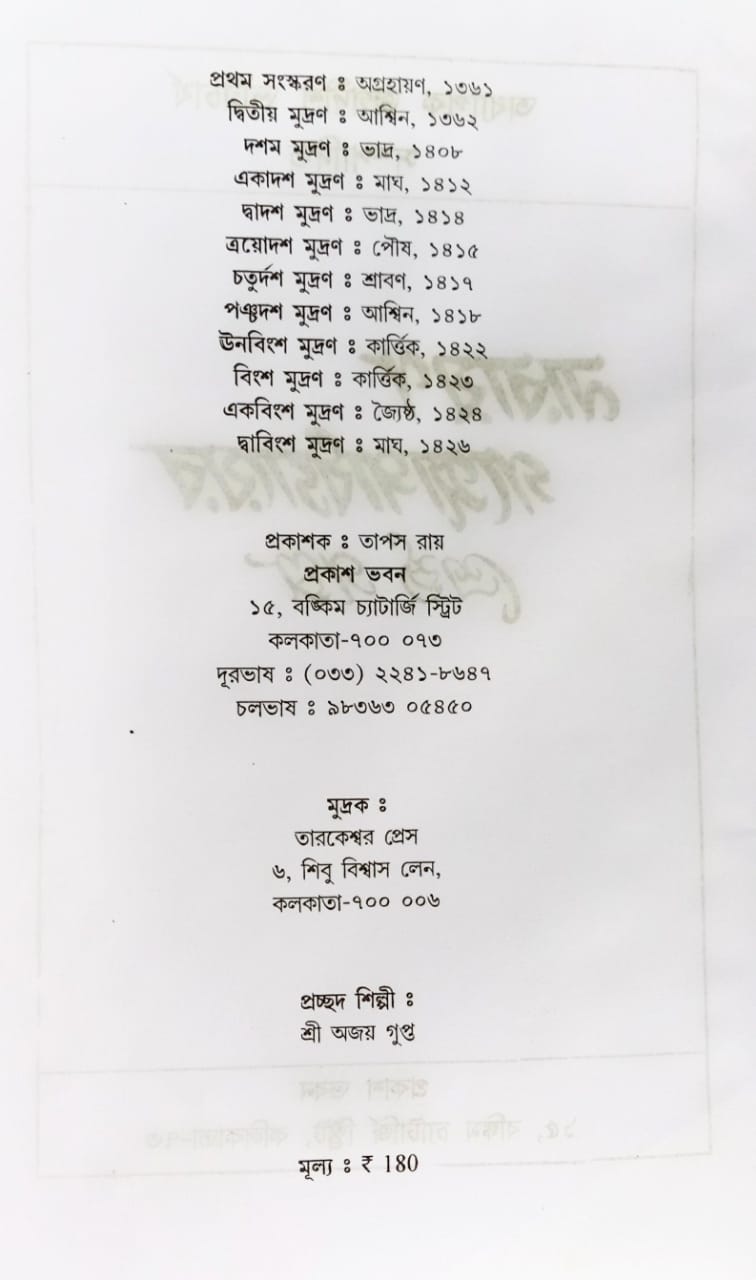 প্রথম সংস্করণ ঃ অগ্রহায়ণ, ১৩৬১
দ্বিতীয় মুদ্রণ ঃ আশ্বিন, ১৩৬২
দশম মুদ্রণ ঃ ভাদ্র, ১৪০৮
একাদশ মুদ্রণ ঃ মাঘ, ১৪১২
দ্বাদশ মুদ্রণ ঃ ভাদ্র, ১৪১৪
ত্রয়োদশ মুদ্রণ ঃ পৌষ, ১৪১৫
চতুর্দশ মুদ্রণ ঃ শ্রাবণ, ১৪১৭
পঞ্চদশ মুদ্রণ ঃ আশ্বিন, ১৪১৮
ঊনবিংশ মুদ্রণ ঃ কার্ত্তিক, ১৪২২
বিংশ মুদ্রণ ঃ কার্ত্তিক, ১৪২৩
একবিংশ মুদ্রণ ঃ জ্যৈষ্ঠ, ১৪২৪
দ্বাবিংশ মুদ্রণ ঃ মাঘ, ১৪২৬
প্রকাশক ঃ তাপস রায়
প্রকাশ ভবন
১৫, বঙ্কিম চ্যাটার্জি স্ট্রিট
কলকাতা-৭০০ ০৭৩
দূরভাষ ঃ (০৩৩) ২২৪১-৮৬৪৭
চলভাষ ঃ ৯৮৩৬৩ ০৫৪৫০
মুদ্রক ঃ
তারকেশ্বর প্রেস
৬, শিবু বিশ্বাস লেন,
কলকাতা-৭০০ ০০৬
প্রচ্ছদ শিল্পী ঃ
শ্রী অজয় গুপ্ত
মূল্য ঃ ₹ 180